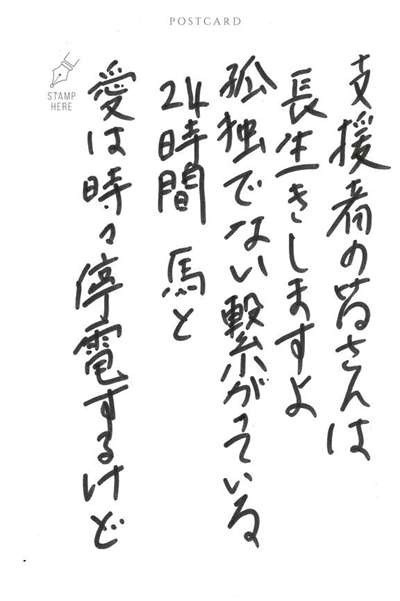 POSTCARD
STAMP
HERE
支援者の皆さんは
長生きしますよ
孤独でない繋がっている
24時間 馬と
愛は時々停電するけど